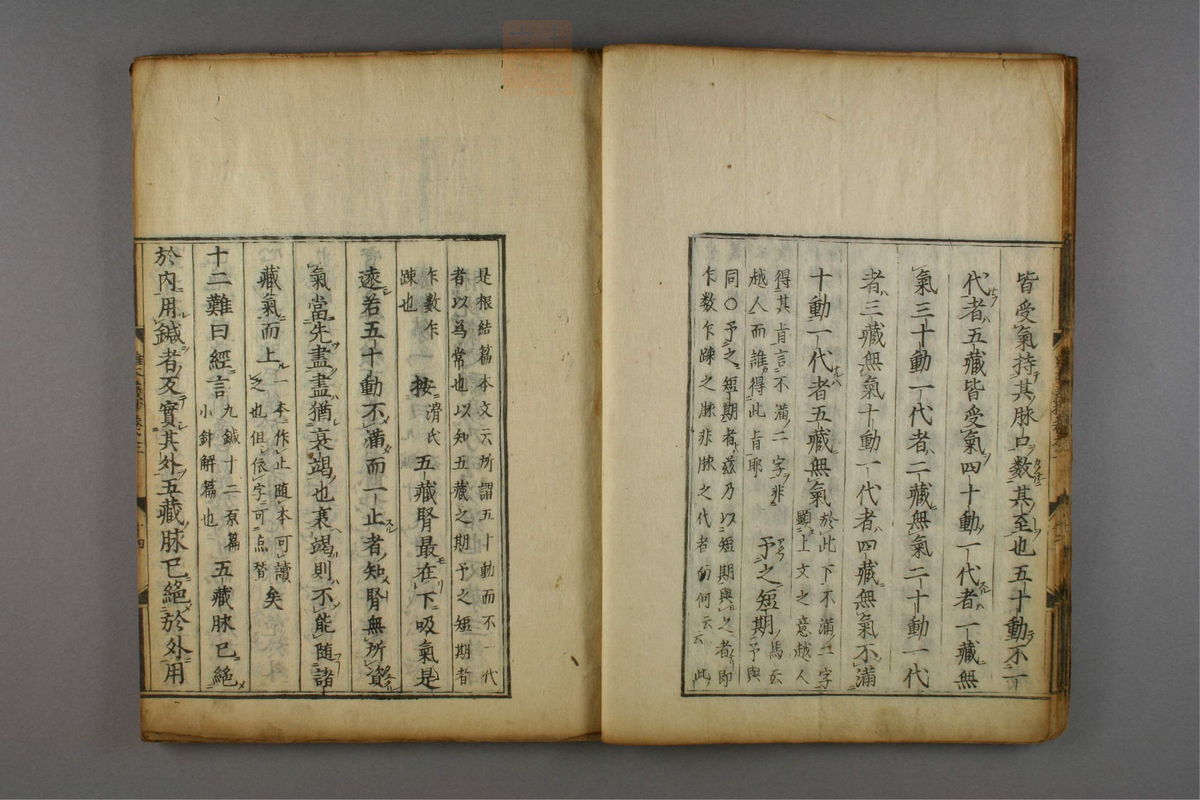 皆受氣持其脉口數其至也五十動不一
代者五藏皆受氣四十動一代者一藏無
氣三十動一代者二藏無氣二十動一代
者三藏無氣十動一代者四藏無氣不滿
十動一代者五藏無氣
於此下不滿二字
顕上文之意越人
得其肯言不滿二字非
越人而誰得此肯耶
予之短期
馬云
予與
同〇予之短期者玆乃以短期與之者即
乍数乍踈之脉非脉之代者的何云云此
是根結篇本文云所謂五十動而不一代
者以為常也以知五藏之期予之短期者
乍数乍
踈也
按
滑氏
五藏腎最在下吸氣是
遠若五十動不滿而一止者知腎無所資
氣當先盡盡猶衰竭也衰竭則不能随諸
藏氣而上
一本作止随本可讀
之也但依字可点替
矣
十二難曰經言
九鍼十二原篇
小針解篇也
五藏脉已絕
於内用鍼者反實其外五藏脉已絕於外用